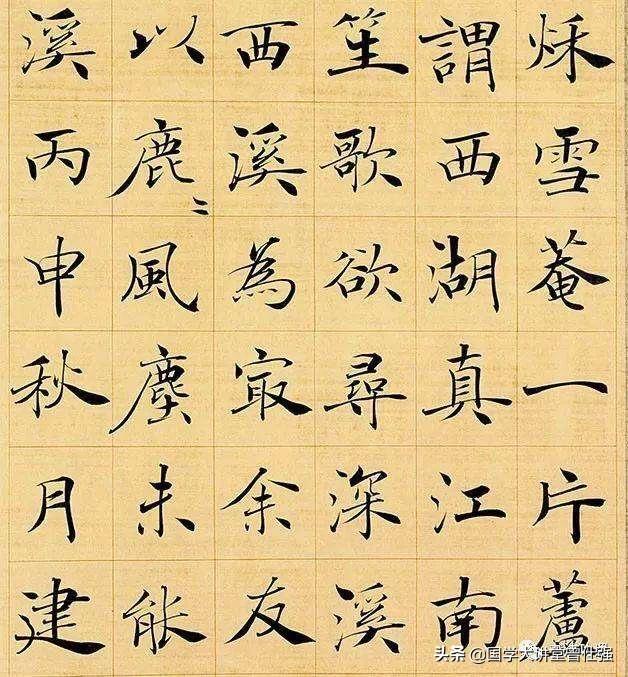 秌雪菴一片蘆
謂西湖真江南
笙歌欲尋深溪
西溪為㝡余友
以鹿二風塵未能
溪丙申秋月建
头条 @国学大讲堂